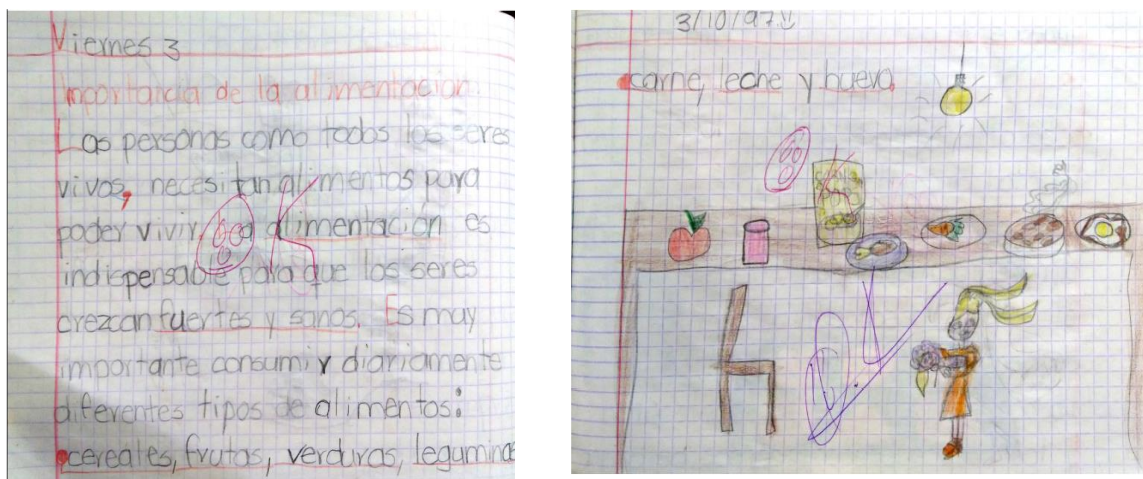 Viernes 3
Importancia de la alimentación.
Las personas como todos los seres
vivos, necesitan alimentos para
poder vivir. La alimentación es
indispensable para que los seres
crezcan fuertes y sanos. Es muy
importante consumir diariamente
diferentes tipos de alimentos:
cereales, frutas, verduras, leguminos
3/10/97
carne, leche y huevo.